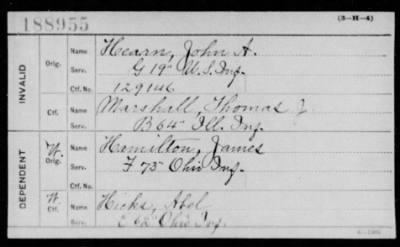 188955
(3-H-4)
INVALID
Orig.
Name Hearn, John A.
Serv. G 19" U.S. Inf.
Ctf. No. 129146
Ctf.
Name Marshall, Thomas J.
Serv. B 64" Ill. Inf.
DEPENDENT
W.
Orig.
Name Hamilton, James
Serv. F 75" Ohio Inf.
Ctf. No.
W.
Ctf.
Name Hicks, Abel
Serv. Ohio Inf.